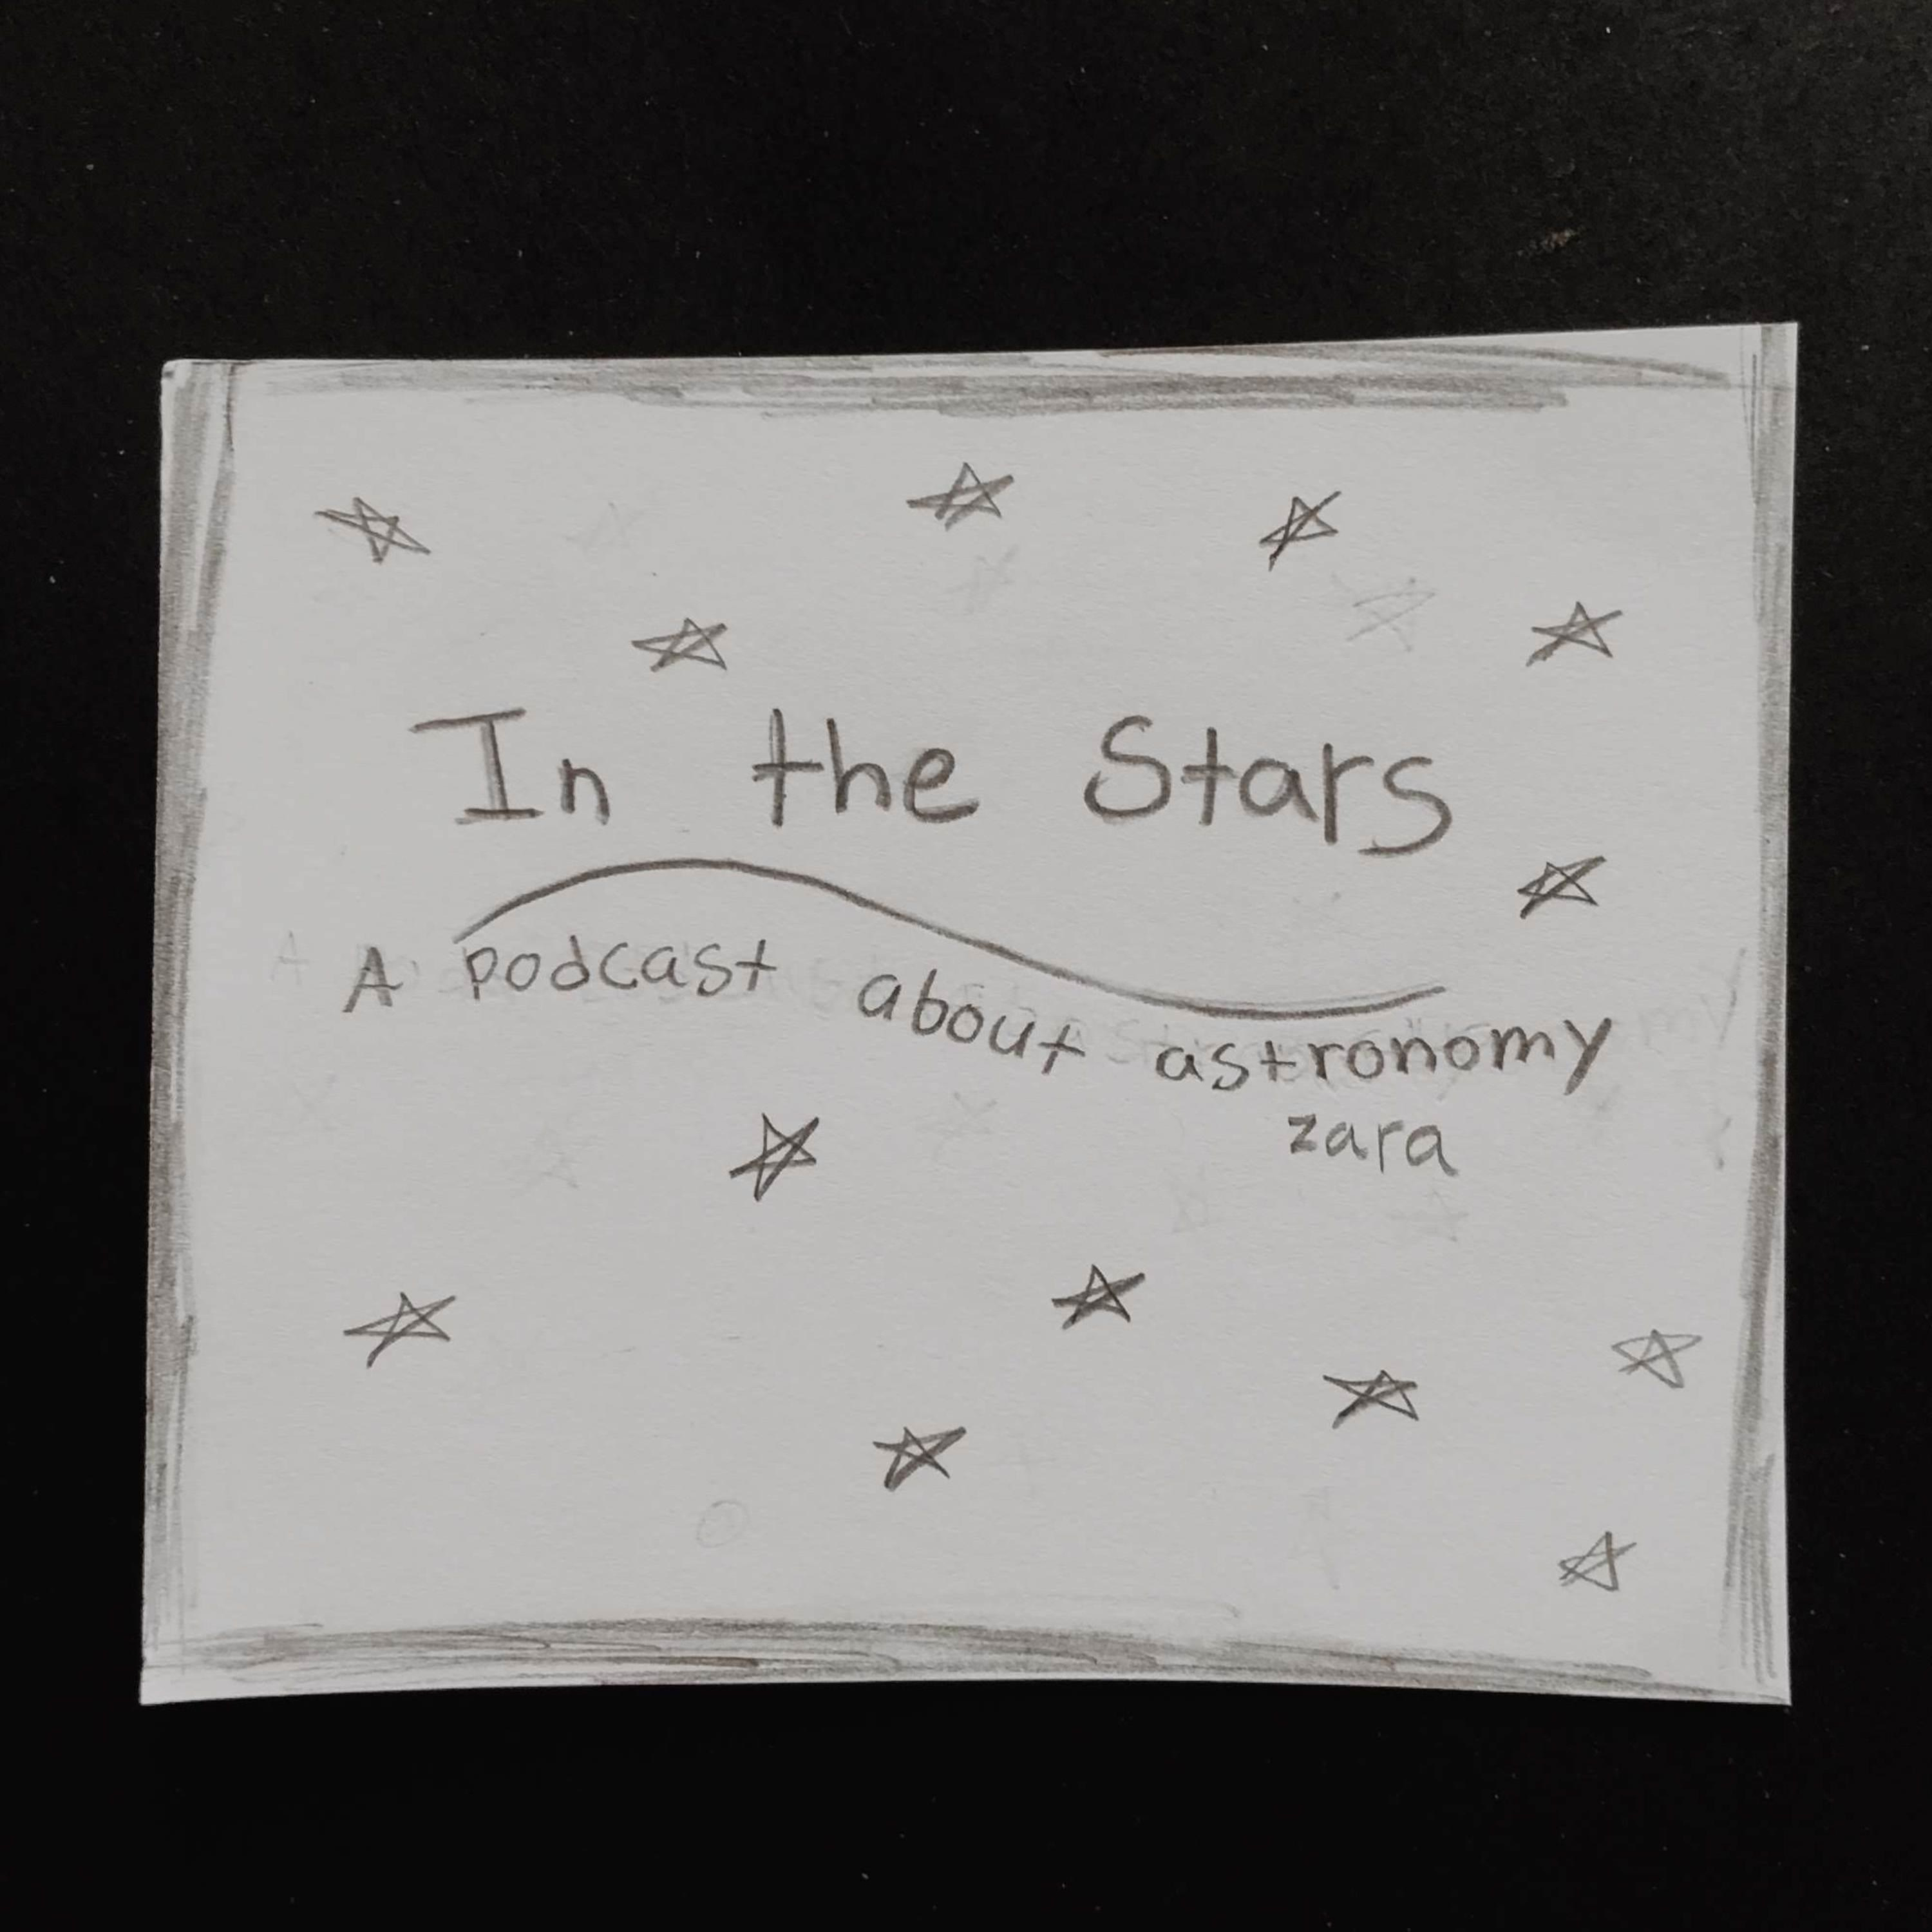 In the Stars
A podcast about astronomy
zara